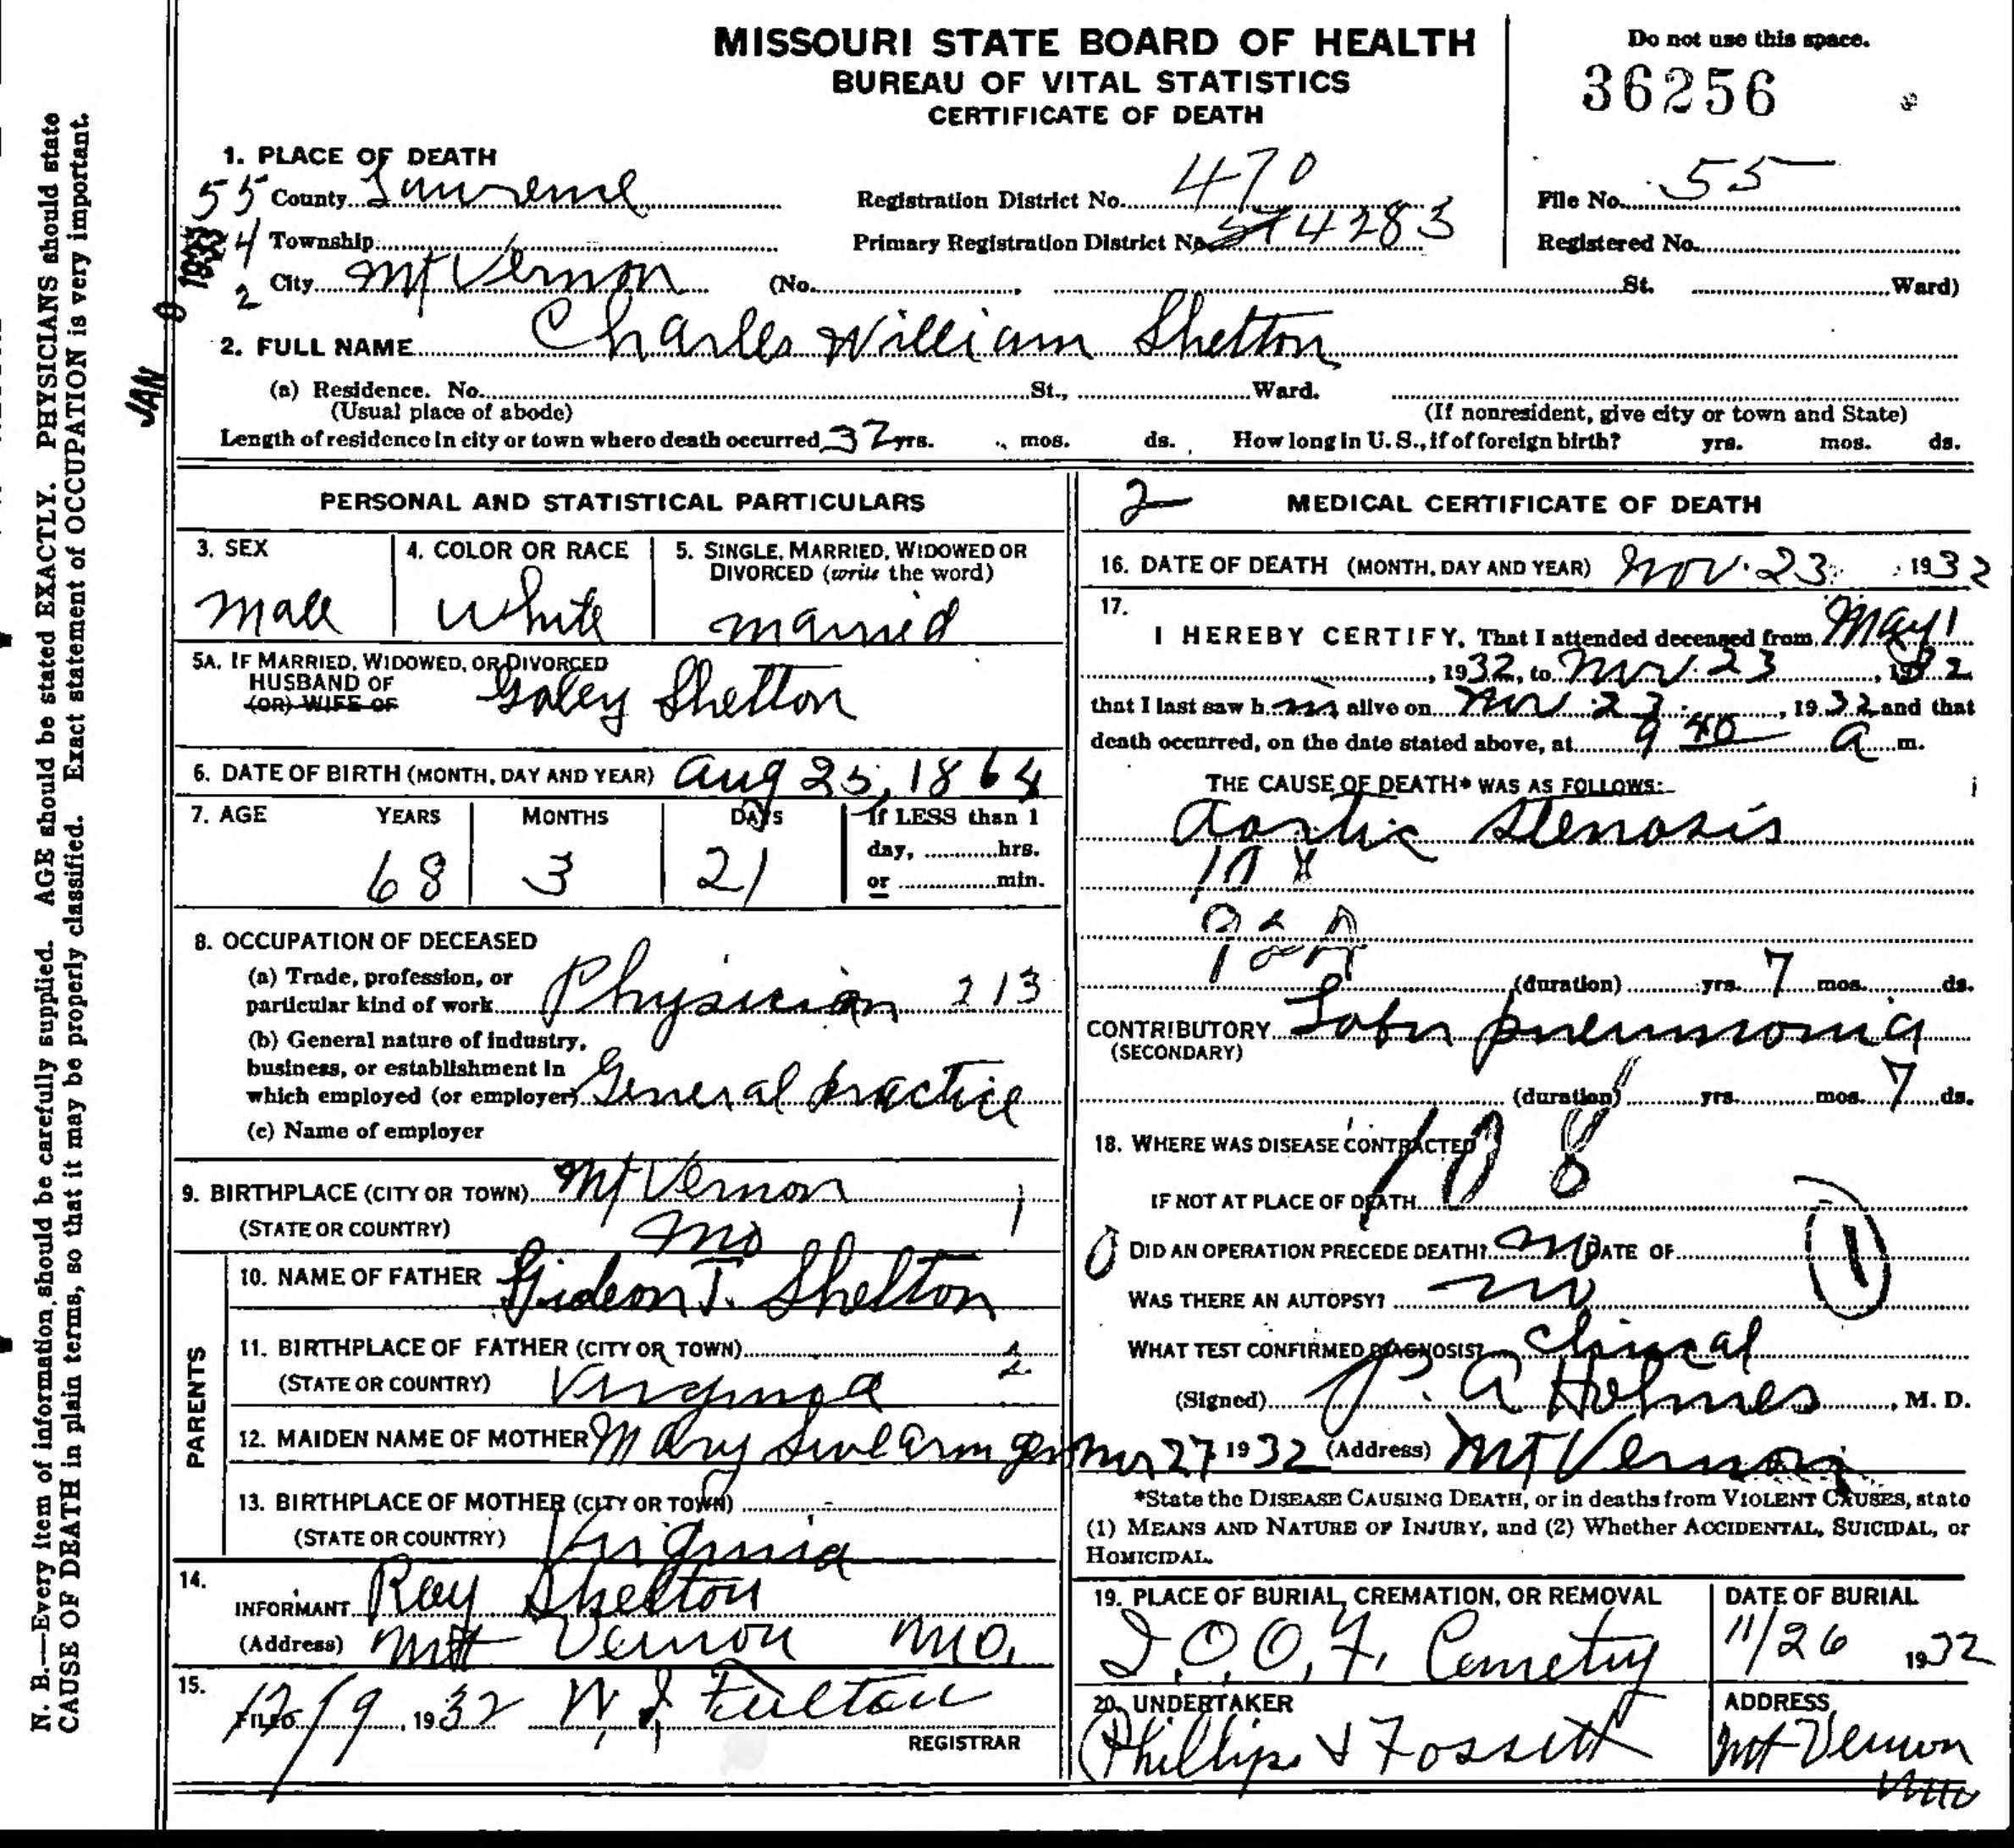 MISSOURI STATE BOARD OF HEALTH
BUREAU OF VITAL STATISTICS
CERTIFICATE OF DEATH
Do not use this space.
36256
1. PLACE OF DEATH
55 County Lawrence Registration District No. 470 File No. 55
4 Township Primary Registration District No. 4283 Registered No.
2 City Mt Vernon (No. , St. Ward)
2. FULL NAME Charles William Shelton
(a) Residence. No. St., Ward.
(Usual place of abode) (If nonresident, give city or town and State)
Length of residence in city or town where death occurred 37 yrs. mos. ds. How long in U. S., if of foreign birth? yrs. mos. ds.
JAN 1933
N. B.—Every item of information should be carefully supplied. AGE should be stated EXACTLY. PHYSICIANS should state
CAUSE OF DEATH in plain terms, so that it may be properly classified. Exact statement of OCCUPATION is very important.
PERSONAL AND STATISTICAL PARTICULARS
3. SEX 4. COLOR OR RACE 5. SINGLE, MARRIED, WIDOWED OR
DIVORCED (write the word)
Male White Married
5A. IF MARRIED, WIDOWED, OR DIVORCED
HUSBAND OF
(OR) WIFE OF
Shelton
6. DATE OF BIRTH (MONTH, DAY AND YEAR) Aug 25, 1864
7. AGE YEARS MONTHS DAYS If LESS than 1
day, hrs.
or min.
68 3 21
8. OCCUPATION OF DECEASED
(a) Trade, profession, or
particular kind of work Physician 213
(b) General nature of industry,
business, or establishment in
which employed (or employer) General practice
(c) Name of employer
9. BIRTHPLACE (CITY OR TOWN) Mt Vernon 1
(STATE OR COUNTRY) Mo
PARENTS
10. NAME OF FATHER Gideon T. Shelton
11. BIRTHPLACE OF FATHER (CITY OR TOWN)
(STATE OR COUNTRY) Virginia
12. MAIDEN NAME OF MOTHER Mary Swearingen
13. BIRTHPLACE OF MOTHER (CITY OR TOWN)
(STATE OR COUNTRY) Virginia
14.
INFORMANT Ray Shelton
(Address) Mt Vernon Mo.
15.
FILED 12/9, 1932 W. J. Fulton
REGISTRAR
2 MEDICAL CERTIFICATE OF DEATH
16. DATE OF DEATH (MONTH, DAY AND YEAR) Nov. 23 1932
17.
I HEREBY CERTIFY, That I attended deceased from May 1
, 1932, to Nov. 23, 1932
that I last saw him alive on Nov 23, 1932 and that
death occurred, on the date stated above, at 9 40 a m.
THE CAUSE OF DEATH* WAS AS FOLLOWS:
Aortic Stenosis
(duration) yrs. 7 mos. ds.
CONTRIBUTORY Lobar pneumonia
(SECONDARY)
(duration) yrs. mos. 7 ds.
18. WHERE WAS DISEASE CONTRACTED
108
IF NOT AT PLACE OF DEATH
DID AN OPERATION PRECEDE DEATH? no DATE OF
1
WAS THERE AN AUTOPSY? no
WHAT TEST CONFIRMED DIAGNOSIS? Clinical
(Signed) J. A Holmes, M. D.
Nov 27 1932 (Address) Mt Vernon
*State the DISEASE CAUSING DEATH, or in deaths from VIOLENT CAUSES, state
(1) MEANS AND NATURE OF INJURY, and (2) Whether ACCIDENTAL, SUICIDAL, or
HOMICIDAL.
19. PLACE OF BURIAL, CREMATION, OR REMOVAL DATE OF BURIAL
I.O.O.F. Cemetery 11/26 1932
20. UNDERTAKER ADDRESS
Phillips & Fossett Mt Vernon
Mo